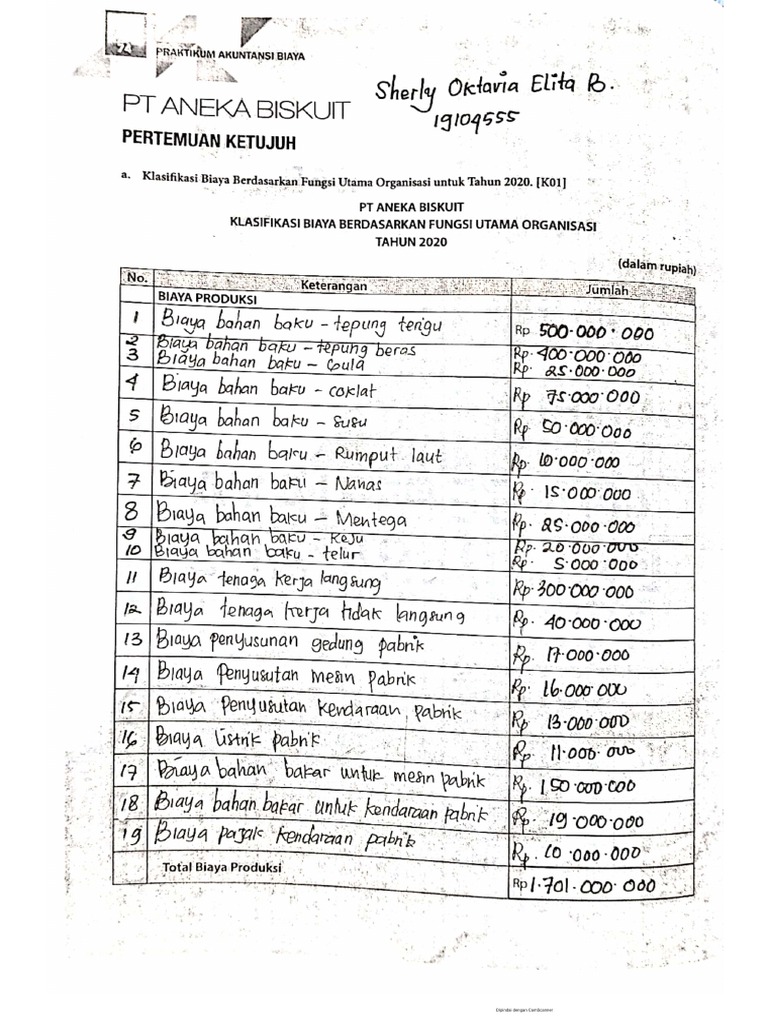 74 PRAKTIKUM AKUNTANSI BIAYA
Sherly Oktavia Elita B.
19104555
PT ANEKA BISKUIT
PERTEMUAN KETUJUH
a. Klasifikasi Biaya Berdasarkan Fungsi Utama Organisasi untuk Tahun 2020. [K01]
PT ANEKA BISKUIT
KLASIFIKASI BIAYA BERDASARKAN FUNGSI UTAMA ORGANISASI
TAHUN 2020
(dalam rupiah)
No. Keterangan Jumlah
BIAYA PRODUKSI
1 Biaya bahan baku - tepung terigu Rp 500.000.000
2 Biaya bahan baku - tepung beras Rp. 400.000.000
3 Biaya bahan baku - Gula Rp. 25.000.000
4 Biaya bahan baku - coklat Rp 75.000.000
5 Biaya bahan baku - susu Rp. 50.000.000
6 Biaya bahan baku - Rumput laut Rp. 10.000.000
7 Biaya bahan baku - Nanas Rp. 15.000.000
8 Biaya bahan baku - Mentega Rp. 25.000.000
9 Biaya bahan baku - Keju Rp. 20.000.000
10 Biaya bahan baku - telur Rp. 5.000.000
11 Biaya tenaga kerja langsung Rp. 300.000.000
12 Biaya tenaga kerja tidak langsung Rp. 40.000.000
13 Biaya penyusunan gedung pabrik Rp. 17.000.000
14 Biaya Penyusutan mesin pabrik Rp. 16.000.000
15 Biaya Penyusutan kendaraan pabrik Rp. 13.000.000
16 Biaya listrik pabrik Rp. 11.000.000
17 Biaya bahan bakar untuk mesin pabrik Rp. 150.000.000
18 Biaya bahan bakar untuk kendaraan pabrik Rp. 19.000.000
19 Biaya pajak kendaraan pabrik Rp. 10.000.000
Total Biaya Produksi Rp 1.701.000.000
Dipindai dengan CamScanner